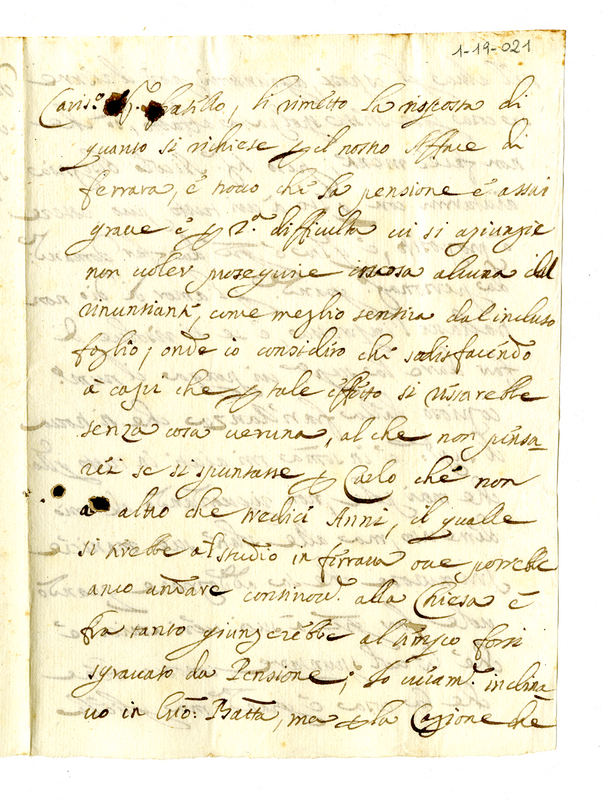 1-19-021
Caris.o fratello, li rimetto la risposta di
quanto si richiese p il nostro Affare di
ferrara, è trovo che la pensione è assai
grave è p 2.a difficulta vi si agiunge
non voler proseguire alcuna dal
rinuntiante, come meglio sentira dal incluso
foglio; onde io considiro che sodisfacendo
a capi che p tale effetto si restarebbe
senza cosa veruna, al che non pensa-
rei se si spuntasse p Carlo che non
a altro che tredici Anni, il qualle
si trebbe al studio in ferrara ove potrebbe
anco andare continov.e alla Chiesa è
fra tanto giungerebbe al forsi
sgravato da Pensione; Io inclina
vo in Gio: Batta, ma p la Cagione che